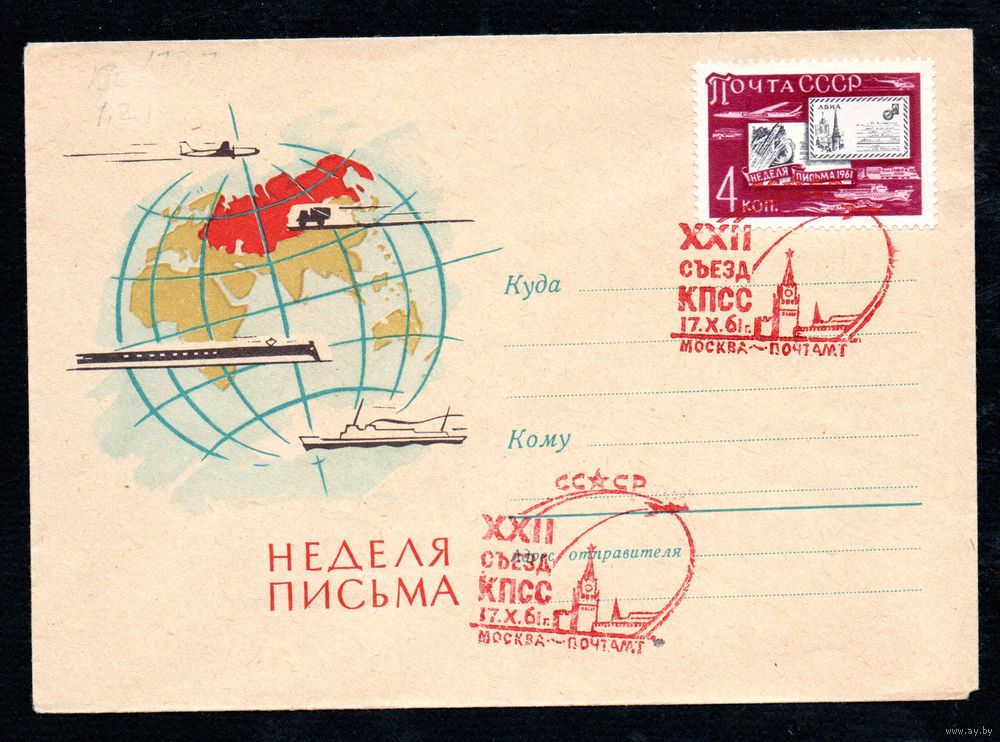 ПОЧТА СССР
АВИА
НЕДЕЛЯ ПИСЬМА 1961
4 КОП.
XXII
СЪЕЗД
КПСС
17.X.61г.
МОСКВА~ПОЧТАМТ
Куда
Кому
СС☆СР
XXII
СЪЕЗД
КПСС
17.X.61г.
МОСКВА~ПОЧТАМТ
Адрес отправителя
НЕДЕЛЯ
ПИСЬМА
www.ay.by